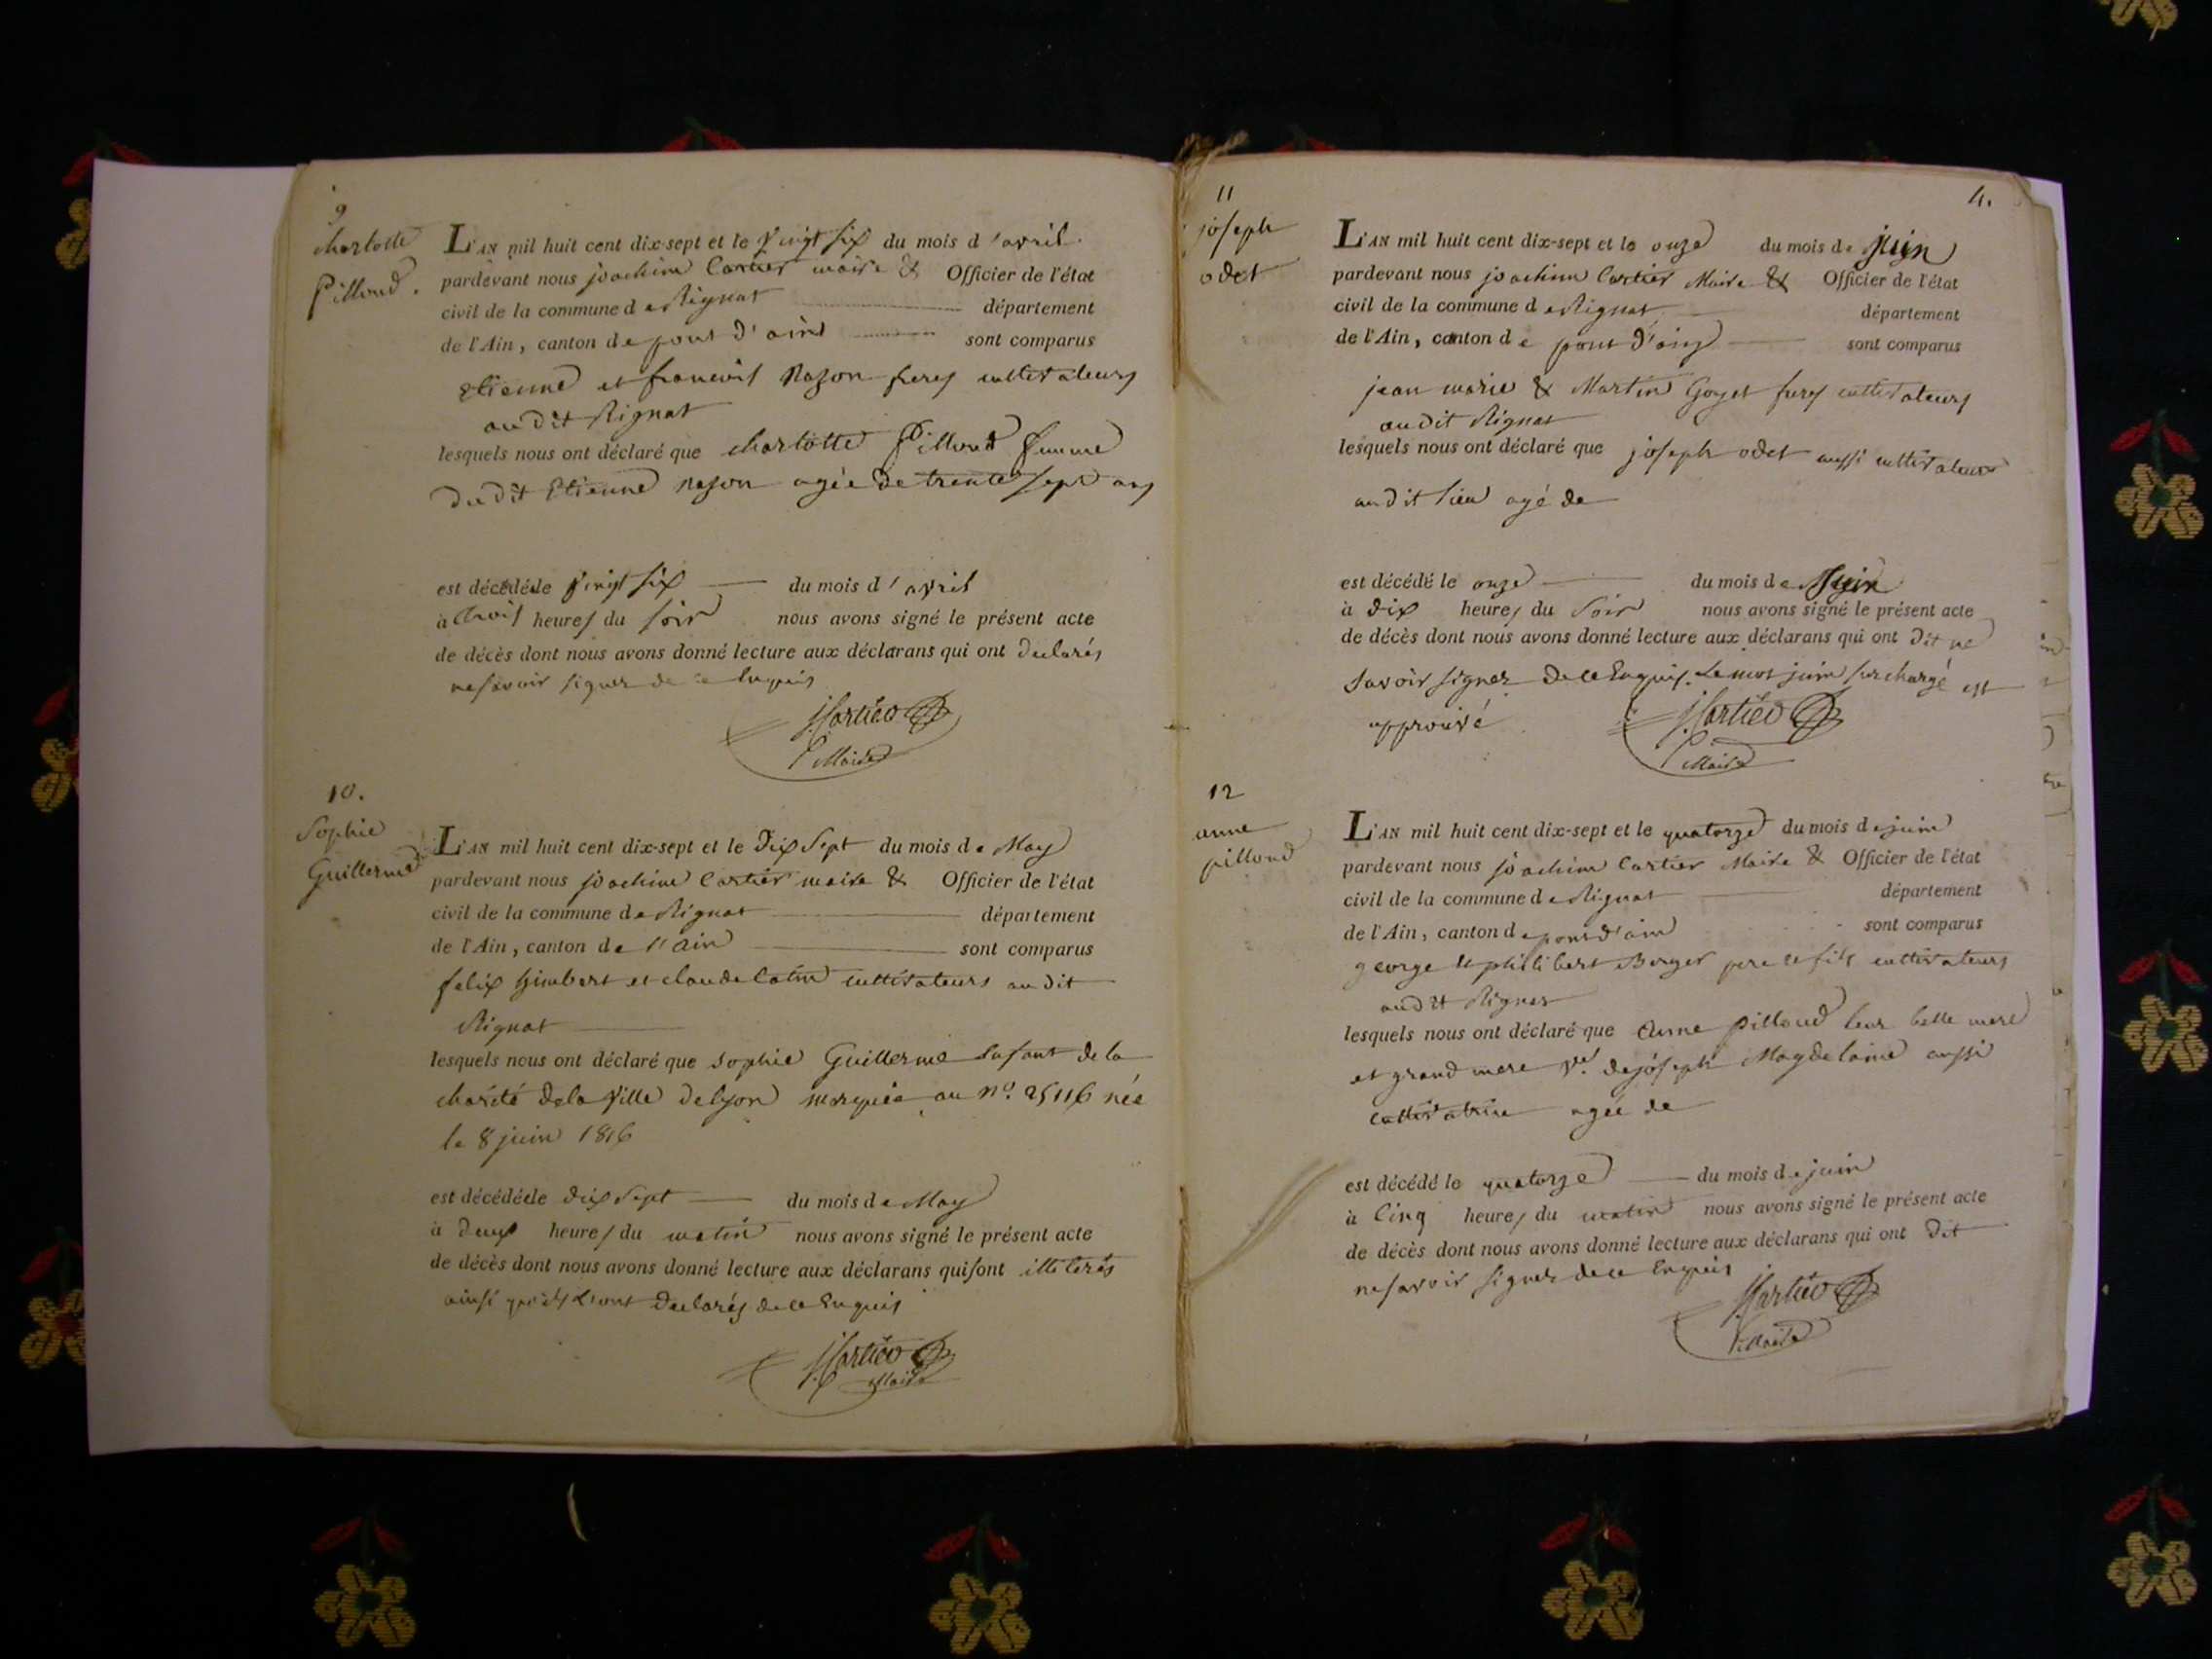 9
charlotte
Pilloud.
L'AN mil huit cent dix-sept et le vingt six du mois d'avril
pardevant nous joachim Cartier maire & Officier de l'état
civil de la commune de Rignat département
de l'Ain, canton de pont d'ains sont comparus
Etienne et francois Nazon freres cultivateurs
audit Rignat
lesquels nous ont déclaré que charlotte Pilloud femme
dudit Etienne agée de trente sept ans
est décédée le vingt six du mois d'avril
à trois heures du soir nous avons signé le présent acte
de décès dont nous avons donné lecture aux déclarans qui ont declarés
ne savoir signer de ce Enquis
JCartier
Maire
10.
Sophie
Guillerme
L'AN mil huit cent dix-sept et le dix Sept du mois de May
pardevant nous joachim Cartier maire & Officier de l'état
civil de la commune de Rignat département
de l'Ain, canton de l'ain sont comparus
felix himbert et claude Catin cultivateurs audit
Rignat
lesquels nous ont déclaré que Sophie Guillerme Enfant de la
charité de la Ville de lyon marquée au n.º 25116 née
le 8 juin 1816
est décédée le dix Sept du mois de May
à deux heures du matin nous avons signé le présent acte
de décès dont nous avons donné lecture aux déclarans qui sont illiterés
ainsi qu'ils l'ont declarés de ce Enquis
JCartier
Maire
11
joseph
odet
4.
L'AN mil huit cent dix-sept et le onze du mois de juin
pardevant nous joachim Cartier Maire & Officier de l'état
civil de la commune de Rignat département
de l'Ain, canton de pont d'ain sont comparus
jean marie & Martin Goyet freres cultivateurs
audit Rignat
lesquels nous ont déclaré que joseph odet aussi cultivateur
audit lieu agé de
est décédé le onze du mois de Juin
à dix heures du Soir nous avons signé le présent acte
de décès dont nous avons donné lecture aux déclarans qui ont dit ne
Savoir signer de ce Enquis. Le mot juin surchargé est
approuvé
JCartier
Maire
12
anne
pilloud
L'AN mil huit cent dix-sept et le quatorze du mois de juin
pardevant nous joachim Cartier Maire & Officier de l'état
civil de la commune de Rignat département
de l'Ain, canton de pont d'ain sont comparus
george et philibert Berger pere et fils cultivateurs
audit Rignat
lesquels nous ont déclaré que Anne Pilloud leur belle mere
et grand mere Ve. de joseph Magdelaine aussi
cultivatrice agée de
est décédé le quatorze du mois de juin
à Cinq heures du matin nous avons signé le présent acte
de décès dont nous avons donné lecture aux déclarans qui ont dit
ne savoir signer de ce Enquis
JCartier
Maire